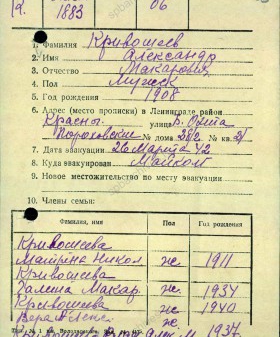 Я. 1883 06
1. Фамилия Кривошеев
2. Имя Александр
3. Отчество Макарович
4. Пол Мужск
5. Год рождения 1908
6. Адрес (место прописки) в Ленинграде район
Красн. улица Б. Охта
Пороховские № дома 38/2 № кв.
7. Дата эвакуации 26 Марта 42
8. Куда эвакуирован Майкоп
9. Новое местожительство по месту эвакуации
10. Члены семьи:
Фамилия, имя Пол Год рождения
Кривошеева
Матрена Никол ж 1911
Кривошеева
Галина Макар ж 1934
Кривошеева ж 1940
Вера Алекс ж
1937